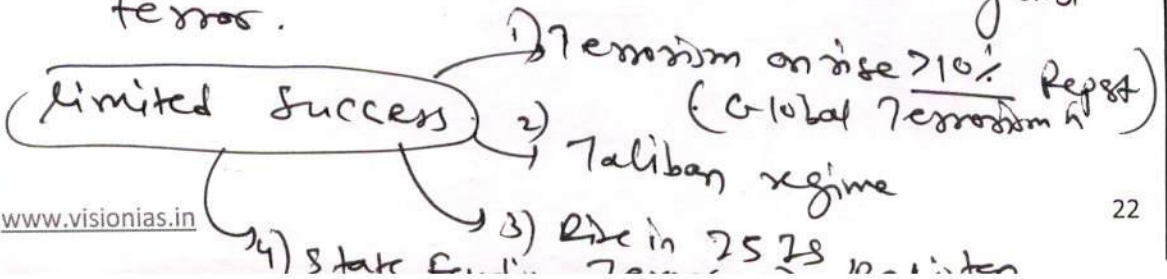 terror.
limited success
1) Terrorism on rise >10%
(Global Terrorism Repst)
2) Taliban regime
3) Rise in ISIS
4) State
www.visionias.in
22